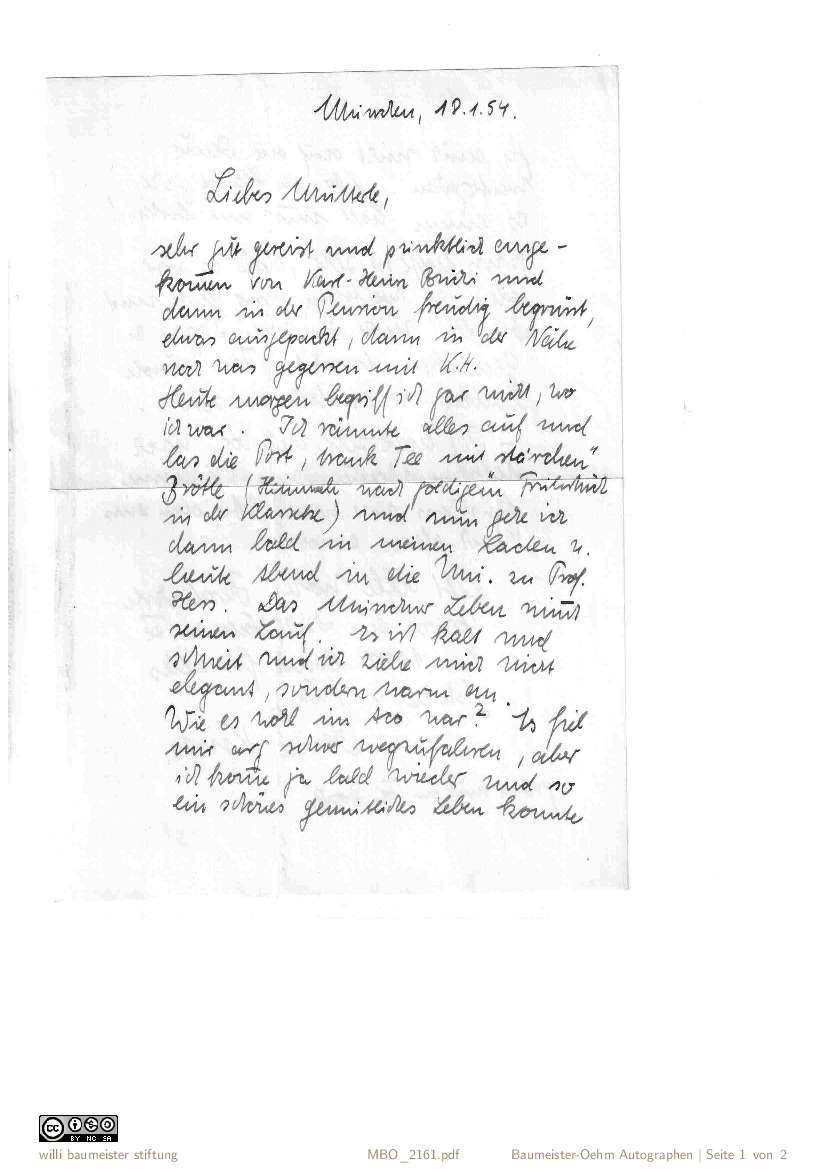 München, 18.1.54.
Liebes Mutterle,
sehr gut gereist und pünktlich ange-
kom̄en von Karl-Heim und
dann in der Pension freudig begrüsst,
etwas ausgepackt, dann in der Nähe
noch was gegessen mit K.H.
Heute morgen begriff ich gar nicht, wo
ich war. Ich räumte alles auf und
las die Post, trank Tee mit
Brötle ( nach goldigem Frühstück
in der ) und nun gehe ich
dann bald in meinen Laden u.
heute Abend in die Uni. zu Prof.
Hess. Das Münchner Leben nim̄t
seinen Lauf. Es ist kalt und
schneit und ich ziehe mich nicht
elegant, sondern warm an.
Wie es wohl im war? Es fiel
mir arg schwer wegzufahren, aber
ich kom̄e ja bald wieder und so
ein schönes gemütliches Leben konnte
willi baumeister stiftung
MBO_2161.pdf
Baumeister-Oehm Autographen | Seite 1 von 2
BY NC SA